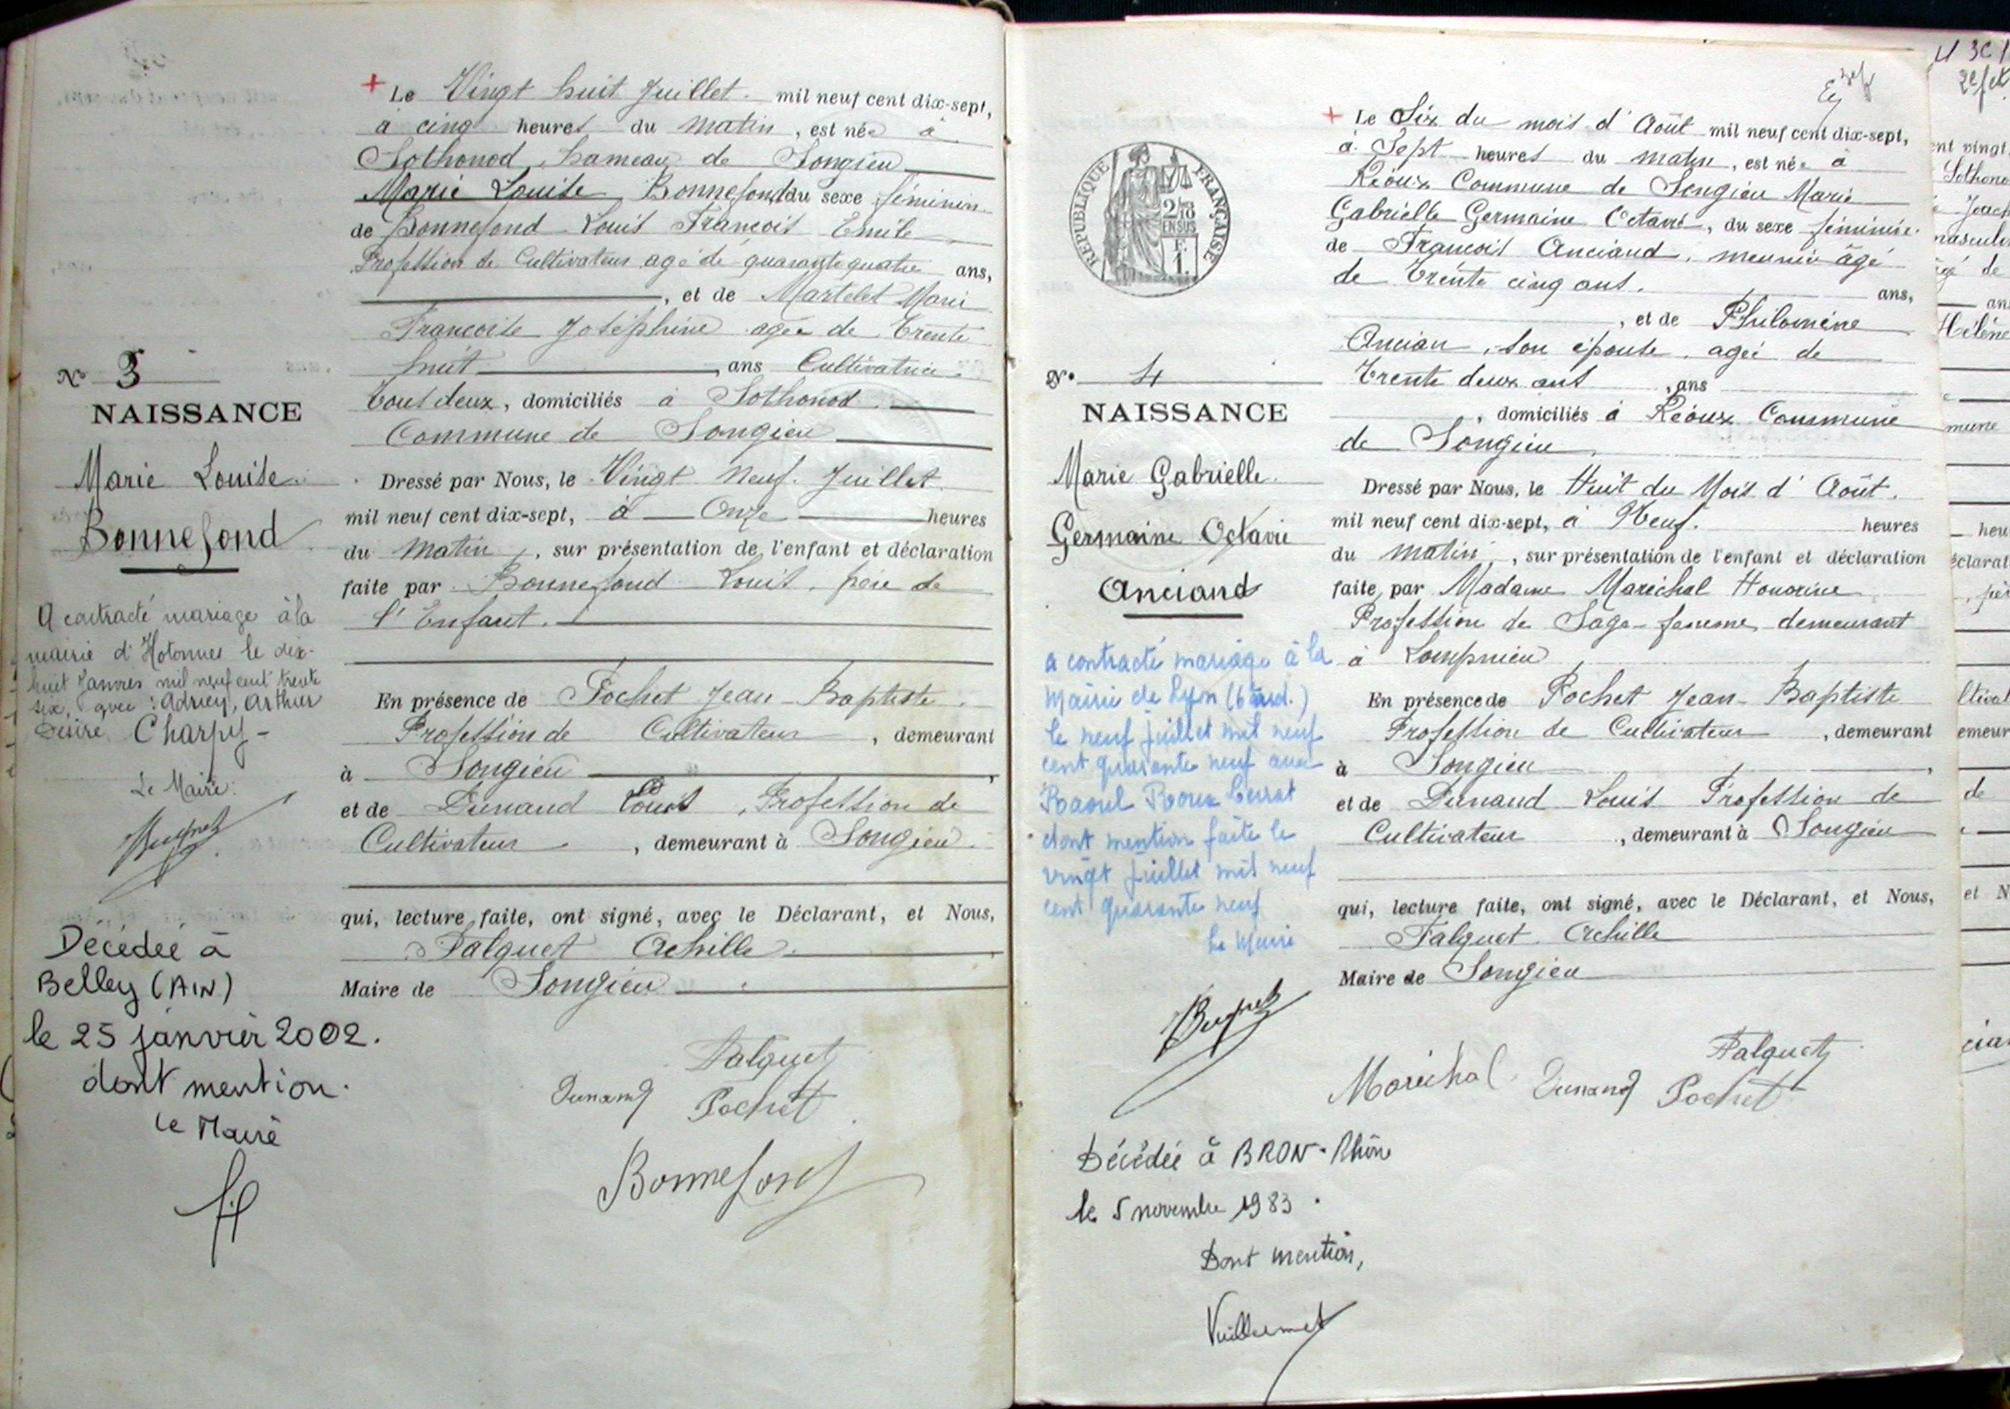 + Le Vingt huit Juillet mil neuf cent dix-sept,
à cinq heures du matin, est née à
Sothonod, hameau de Songieu
Marie Louise Bonnefond du sexe féminin
de Bonnefond Louis François Emile
Profession de Cultivateur agé de quarante quatre ans,
, et de Martelet Marie
Françoise Joséphine agée de Trente
huit ans Cultivatrice
Tous deux, domiciliés à Sothonod
Commune de Songieu
Dressé par Nous, le Vingt Neuf Juillet
mil neuf cent dix-sept, à Onze heures
du matin, sur présentation de l'enfant et déclaration
faite par Bonnefond Louis, père de
l'Enfant.
En présence de Pochet Jean-Baptiste
Profession de Cultivateur, demeurant
à Songieu,
et de Dunand Louis, Profession de
Cultivateur, demeurant à Songieu
qui, lecture faite, ont signé, avec le Déclarant, et Nous,
Falquet Achille
Maire de Songieu
Falquet
Dunand Pochet
Bonnefond
N° 3
NAISSANCE
Marie Louise
Bonnefond
A contracté mariage à la
mairie d'Hotonnes le dix-
huit Janvier mil neuf cent trente
six, avec : Adrien, Arthur
Désiré Charpy -
Le Maire:
Décédée à
Belley (AIN)
le 25 janvier 2002.
dont mention.
Le Maire
+ Le Six du mois d'Août mil neuf cent dix-sept,
à Sept heures du matin, est née à
Réoux Commune de Songieu Marie
Gabrielle Germaine Octavie, du sexe féminin
de François Anciand, meunier âgé
de Trente cinq ans. ans,
, et de Philomène
Ancian, son épouse, agée de
Trente deux ans, ans
, domiciliés à Réoux Commune
de Songieu
Dressé par Nous, le Huit du Mois d'Août.
mil neuf cent dix-sept, à Neuf. heures
du matin, sur présentation de l'enfant et déclaration
faite, par Madame Maréchal Honorine
Profession de Sage-femme, demeurant
à Lompnieu
En présence de Pochet Jean-Baptiste
Profession de Cultivateur, demeurant
à Songieu,
et de Dunand Louis Profession de
Cultivateur, demeurant à Songieu
qui, lecture faite, ont signé, avec le Déclarant, et Nous,
Falquet Achille
Maire de Songieu
Falquet
Maréchal Dunand Pochet
RÉPUBLIQUE FRANÇAISE
EN SUS
N° 4
NAISSANCE
Marie Gabrielle
Germaine Octavie
Anciand
a contracté mariage à la
Mairie de Lyon (6e ard.)
le neuf juillet mil neuf
cent quarante neuf avec
Raoul Roux
dont mention faite le
vingt juillet mil neuf
cent quarante neuf
Le Maire
Décédée à BRON-Rhône
le 5 novembre 1983.
Dont mention,
Vuillermet